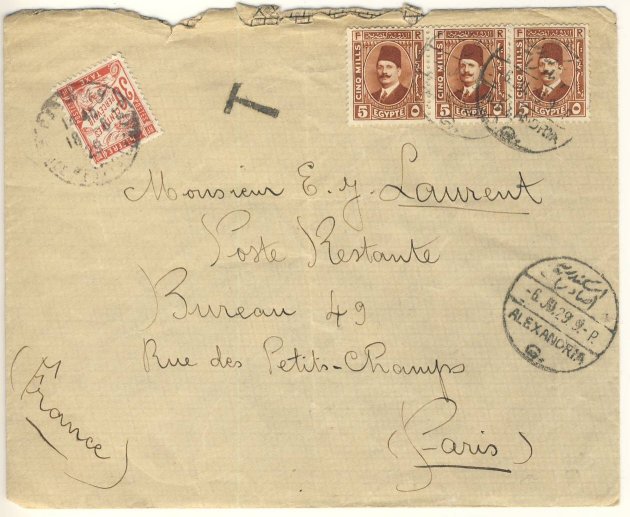 T
F R
CINQ MILLS
5 EGYPTE ٥
F R
CINQ MILLS
5 EGYPTE ٥
F R
CINQ MILLS
5 EGYPTE ٥
Monsieur E. J. Laurent
Poste Restante
Bureau 49
Rue des Petits-Champs
(Paris)
(France)
-6.JU.29.9-P.
ALEXANDRIA